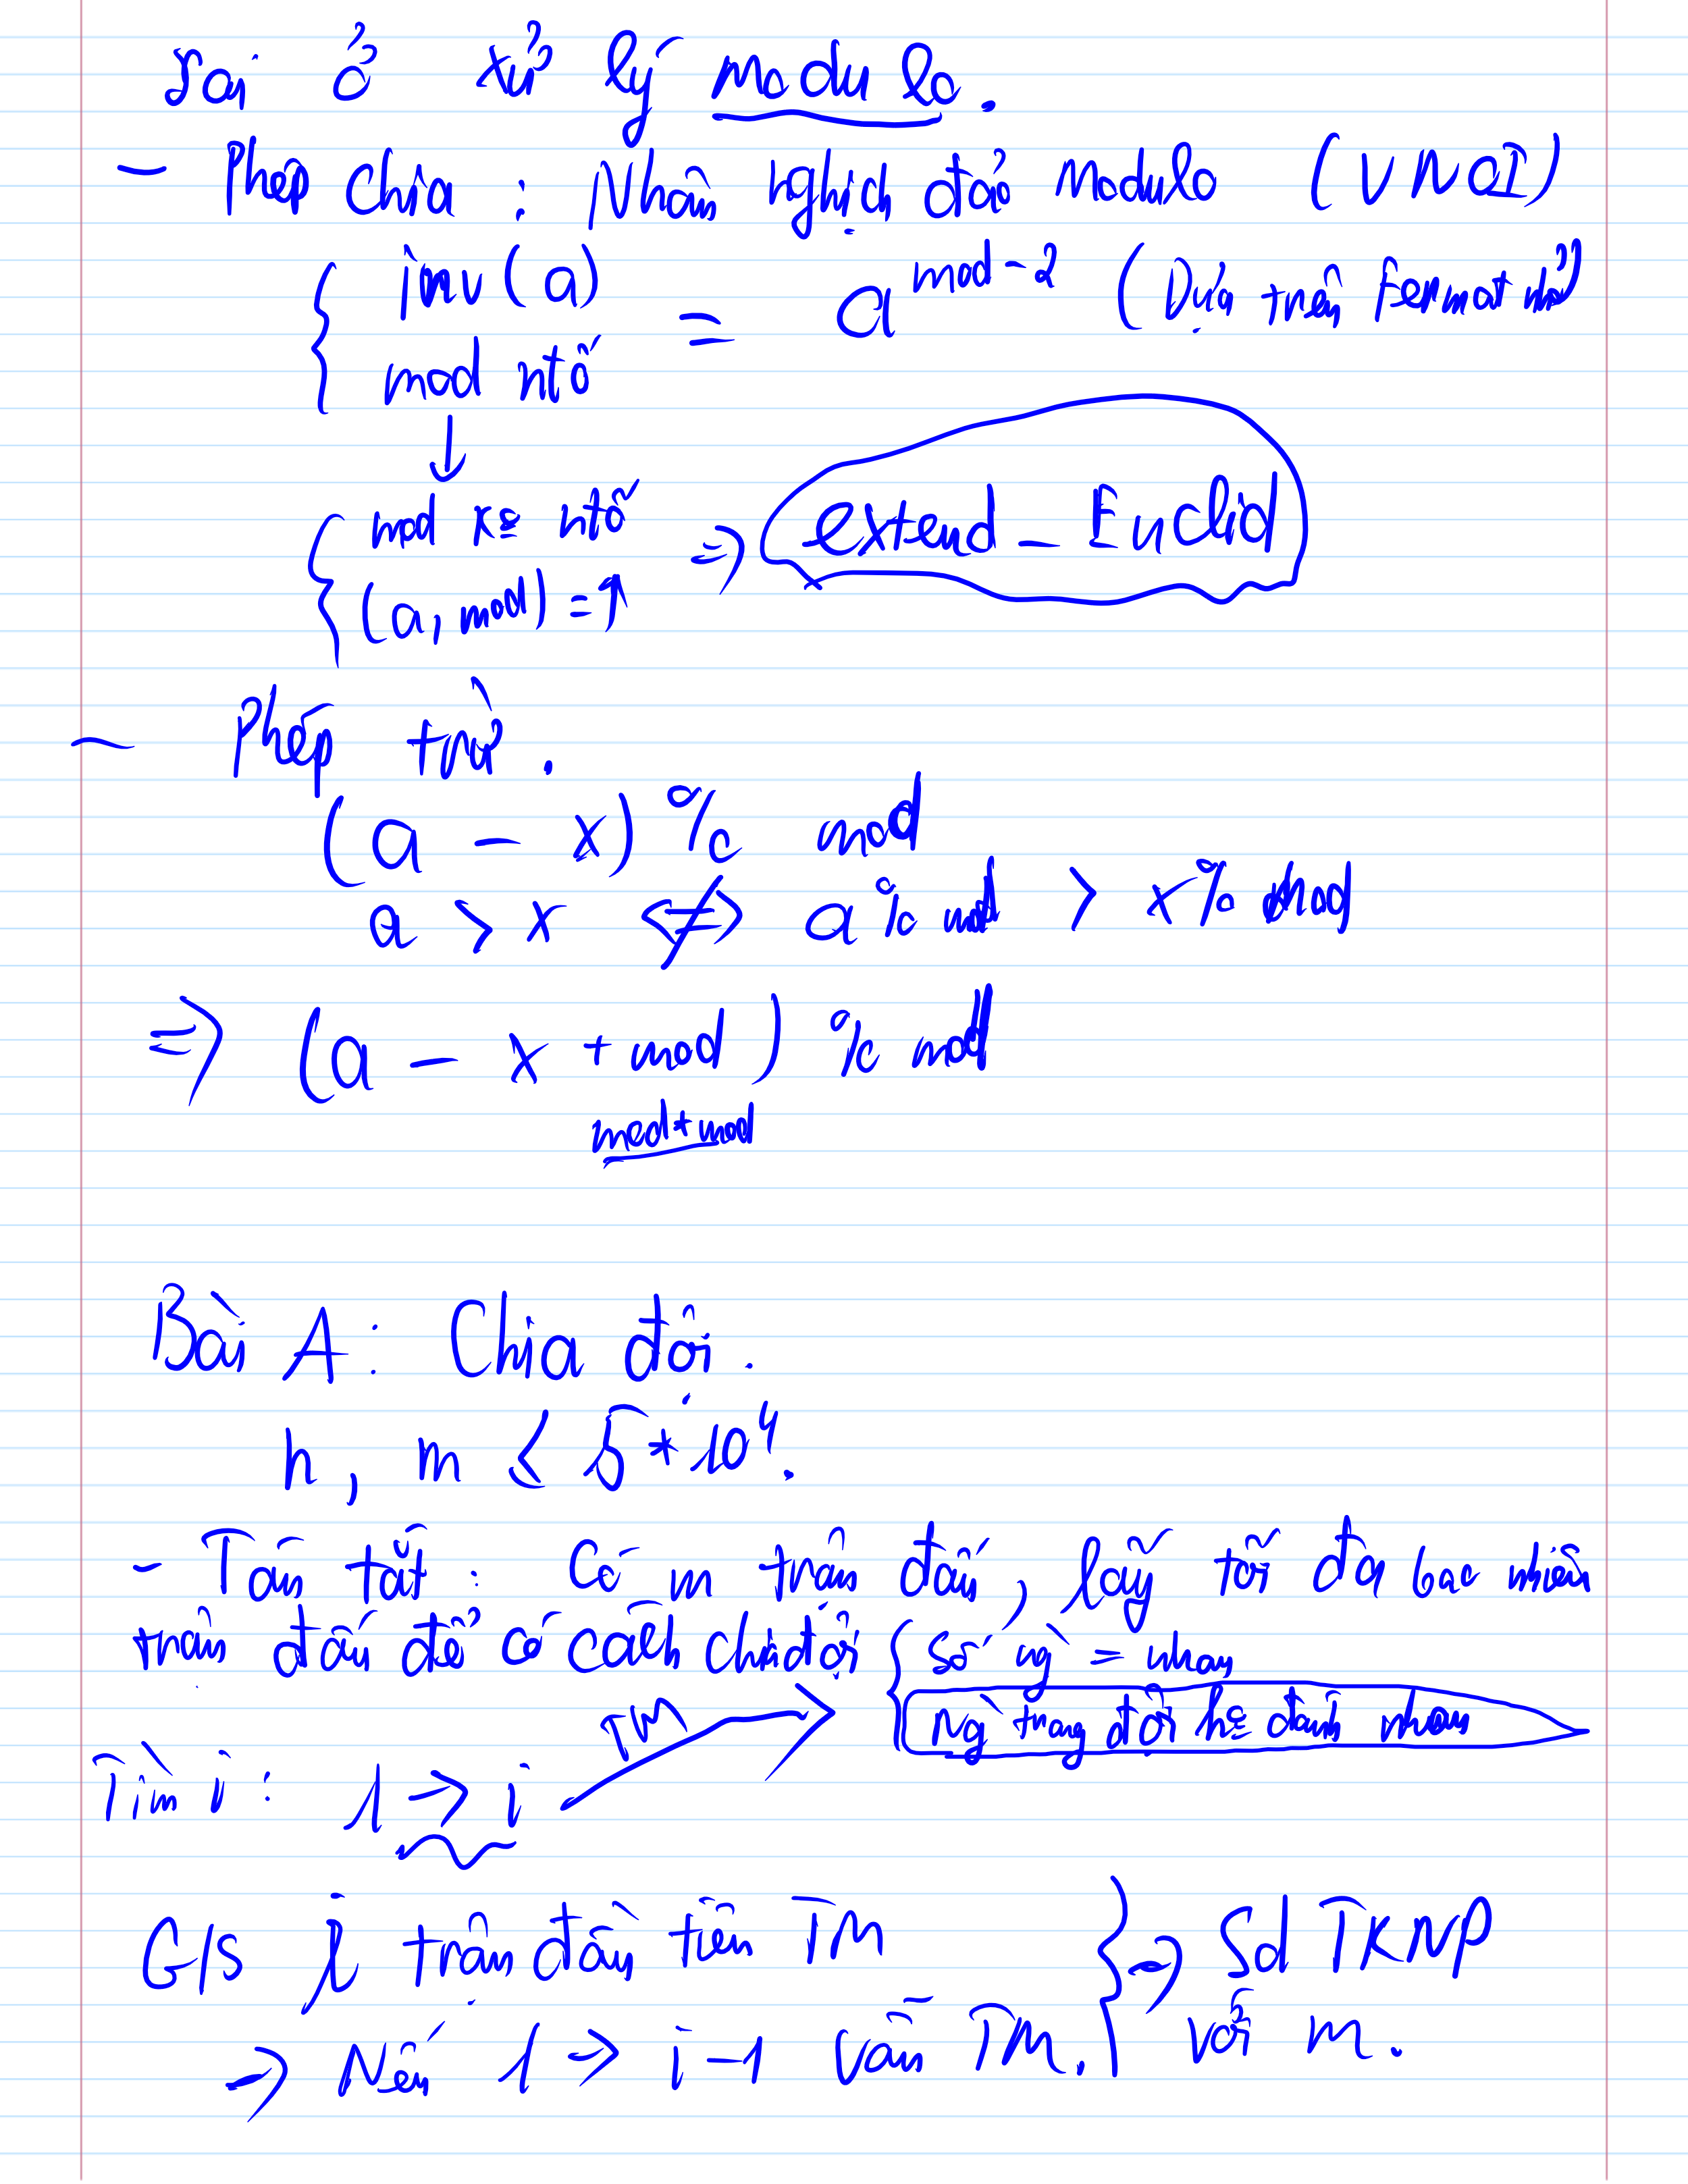 Sai ở xử lý modulo.
- Phép chia : Nhân nghịch đảo Modulo (VNOI)
{ inv(a)
mod ntố = a^{mod-2} (Dựa trên Fermat nhỏ)
↓
{ mod kº ntố
(a, mod) = 1 ⇒ extend - Euclid
- Phép trừ.
(a - x) % mod
a > x ⇎ a % mod > x % mod
⇒ (a - x + mod) % mod
mod * mod
Bài A: Chia đội.
n, m ≤ 5 * 10^4.
- Tóm tắt : Có m trận đấu, lấy tối đa bao nhiêu
trận đấu để có cách chia đội { số ng = nhau
ng trong đội kº đánh nhau
Tìm i : 1 → i TM
G/s i trận đầu tiên TM
⇒ Nếu 1 → i-1 vẫn TM. } ⇒ Sd TKNP
với m.